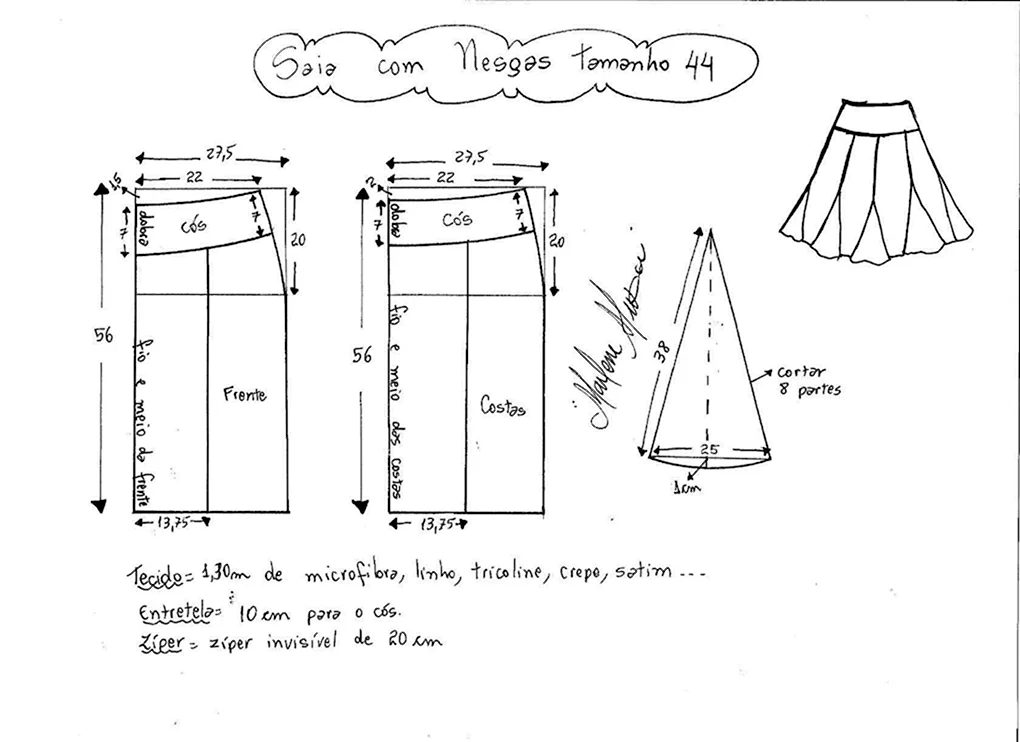 Saia com Nesgas tamanho 44
27,5
22
1,5
7
dobra
cós
7
20
56
fio e meio da frente
Frente
13,75
27,5
22
2
7
dobra
cós
7
20
56
fio e meio das costas
Costas
13,75
Marlene
38
25
1cm
cortar
8 partes
Tecido= 1,30m de microfibra, linho, tricoline, crepe, satim ...
Entretela= 10 cm para o cós.
Zíper= zíper invisível de 20 cm